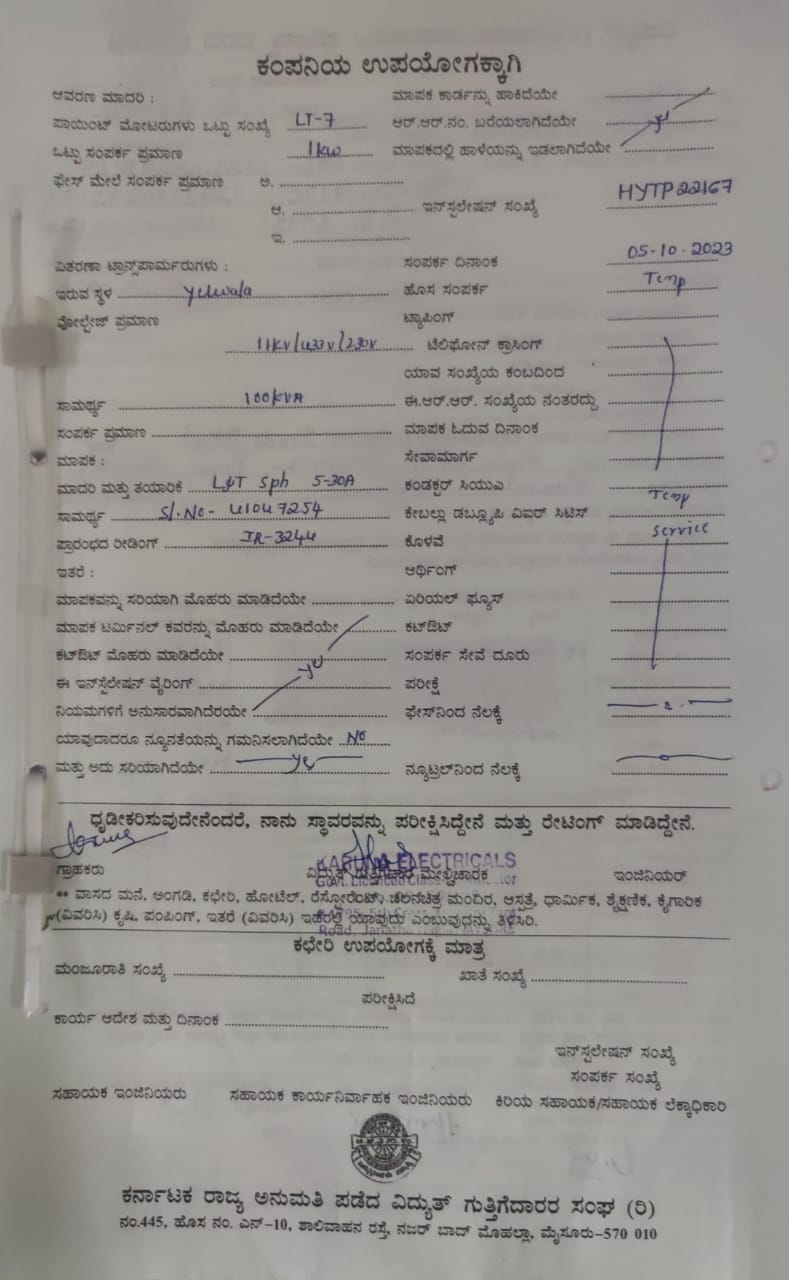 ಕಂಪನಿಯ ಉಪಯೋಗಕ್ಕಾಗಿ
ಆವರಣ ಮಾದರಿ : ಮಾಪಕ ಕಾರ್ಡನ್ನು ಹಾಕಿದೆಯೇ
ಪಾಯಿಂಟ್ ಮೋಟರುಗಳು ಒಟ್ಟು ಸಂಖ್ಯೆ LT-7 ಆರ್.ಆರ್.ನಂ. ಬರೆಯಲಾಗಿದೆಯೇ
ಒಟ್ಟು ಸಂಪರ್ಕ ಪ್ರಮಾಣ 1kw ಮಾಪಕದಲ್ಲಿ ಹಾಳೆಯನ್ನು ಇಡಲಾಗಿದೆಯೇ
ಫೇಸ್ ಮೇಲೆ ಸಂಪರ್ಕ ಪ್ರಮಾಣ ಅ.
ಆ. ಇನ್‌ಸ್ಟಲೇಷನ್ ಸಂಖ್ಯೆ HYTP22167
ಇ.
ವಿತರಣಾ ಟ್ರಾನ್ಸ್‌ಪಾರ್ಮರುಗಳು : ಸಂಪರ್ಕ ದಿನಾಂಕ 05-10-2023
ಇರುವ ಸ್ಥಳ Yelwala ಹೊಸ ಸಂಪರ್ಕ Temp
ವೋಲ್ಟೇಜ್ ಪ್ರಮಾಣ ಟ್ಯಾಪಿಂಗ್
11kv/433v/230v ಟೆಲಿಫೋನ್ ಕ್ರಾಸಿಂಗ್
ಯಾವ ಸಂಖ್ಯೆಯ ಕಂಬದಿಂದ
ಸಾಮರ್ಥ್ಯ 100kVA ಈ.ಆರ್.ಆರ್. ಸಂಖ್ಯೆಯ ನಂತರದ್ದು
ಸಂಪರ್ಕ ಪ್ರಮಾಣ ಮಾಪಕ ಓದುವ ದಿನಾಂಕ
ಮಾಪಕ : ಸೇವಾಮಾರ್ಗ
ಮಾದರಿ ಮತ್ತು ತಯಾರಿಕೆ L&T Sph 5-30A ಕಂಡಕ್ಟರ್ ಸಿಯುಎ
ಸಾಮರ್ಥ್ಯ Sl.No- 41047254 ಕೇಬಲ್ಲು ಡಬ್ಲ್ಯೂಪಿ ವಿಐಆರ್ ಸಿಟಿಸ್ Temp
ಪ್ರಾರಂಭದ ರೀಡಿಂಗ್ IR-3244 ಕೊಳವೆ Service
ಇತರೆ : ಆರ್ಥಿಂಗ್
ಮಾಪಕವನ್ನು ಸರಿಯಾಗಿ ಮೊಹರು ಮಾಡಿದೆಯೇ ಏರಿಯಲ್ ಫ್ಯೂಸ್
ಮಾಪಕ ಟರ್ಮಿನಲ್ ಕವರನ್ನು ಮೊಹರು ಮಾಡಿದೆಯೇ ಕಟ್‌ಔಟ್
ಕಟ್‌ಔಟ್ ಮೊಹರು ಮಾಡಿದೆಯೇ ಸಂಪರ್ಕ ಸೇವೆ ದೂರು
ಈ ಇನ್‌ಸ್ಟಲೇಷನ್ ವೈರಿಂಗ್ ಪರೀಕ್ಷೆ
ನಿಯಮಗಳಿಗೆ ಅನುಸಾರವಾಗಿದೆರಯೇ ಫೇಸ್‌ನಿಂದ ನೆಲಕ್ಕೆ
ಯಾವುದಾದರೂ ನ್ಯೂನತೆಯನ್ನು ಗಮನಿಸಲಾಗಿದೆಯೇ No
ಮತ್ತು ಅದು ಸರಿಯಾಗಿದೆಯೇ ನ್ಯೂಟ್ರಲ್‌ನಿಂದ ನೆಲಕ್ಕೆ
ಧೃಡೀಕರಿಸುವುದೇನೆಂದರೆ, ನಾನು ಸ್ಥಾವರವನ್ನು ಪರೀಕ್ಷಿಸಿದ್ದೇನೆ ಮತ್ತು ರೇಟಿಂಗ್ ಮಾಡಿದ್ದೇನೆ.
KARUNA ELECTRICALS
ಗ್ರಾಹಕರು ವಿದ್ಯುತ್ ಗುತ್ತಿಗೆದಾರ ಮೇಲ್ವಿಚಾರಕ ಇಂಜಿನಿಯರ್
** ವಾಸದ ಮನೆ, ಅಂಗಡಿ, ಕಛೇರಿ, ಹೋಟೆಲ್, ರೆಸ್ಟೋರೆಂಟ್, ಚಲನಚಿತ್ರ ಮಂದಿರ, ಆಸ್ಪತ್ರೆ, ಧಾರ್ಮಿಕ, ಶೈಕ್ಷಣಿಕ, ಕೈಗಾರಿಕ
(ವಿವರಿಸಿ) ಕೃಷಿ, ಪಂಪಿಂಗ್, ಇತರೆ (ವಿವರಿಸಿ) ಇಹರಲ್ಲಿ ಯಾವುದು ಎಂಬುವುದನ್ನು ತಿಳಿಸಿರಿ.
ಕಛೇರಿ ಉಪಯೋಗಕ್ಕೆ ಮಾತ್ರ
ಮಂಜೂರಾತಿ ಸಂಖ್ಯೆ ಖಾತೆ ಸಂಖ್ಯೆ
ಪರೀಕ್ಷಿಸಿದೆ
ಕಾರ್ಯ ಆದೇಶ ಮತ್ತು ದಿನಾಂಕ
ಇನ್‌ಸ್ಟಲೇಷನ್ ಸಂಖ್ಯೆ
ಸಂಪರ್ಕ ಸಂಖ್ಯೆ
ಸಹಾಯಕ ಇಂಜಿನಿಯರು ಸಹಾಯಕ ಕಾರ್ಯನಿರ್ವಾಹಕ ಇಂಜಿನಿಯರು ಕಿರಿಯ ಸಹಾಯಕ/ಸಹಾಯಕ ಲೆಕ್ಕಾಧಿಕಾರಿ
ಕರ್ನಾಟಕ ರಾಜ್ಯ ಅನುಮತಿ ಪಡೆದ ವಿದ್ಯುತ್ ಗುತ್ತಿಗೆದಾರರ ಸಂಘ (ರಿ)
ನಂ.445, ಹೊಸ ನಂ. ಎನ್-10, ಶಾಲಿವಾಹನ ರಸ್ತೆ, ನಜರ್ ಬಾದ್ ಮೊಹಲ್ಲಾ, ಮೈಸೂರು-570 010